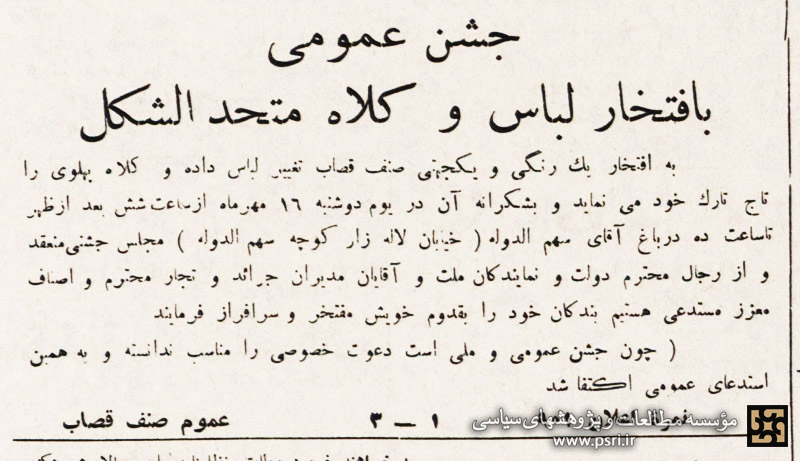 جشن عمومی
بافتخار لباس و کلاه متحد الشکل
به افتخار یك رنگی و یکجهتی صنف قصاب تغییر لباس داده و کلاه پهلوی را
تاج تارك خود می نماید و بشکرانه آن در یوم دوشنبه ۱۶ مهرماه از ساعت شش بعد از ظهر
تا ساعت ده در باغ آقای سهم الدوله ( خیابان لاله زار کوچه سهم الدوله ) مجلس جشنی منعقد
و از رجال محترم دولت و نمایندکان ملت و آقایان مدیران جرائد و تجار محترم و اصناف
معزز مستدعی هستیم بندکان خود را بقدوم خویش مفتخر و سرافراز فرمایند
( چون جشن عمومی و ملی است دعوت خصوصی را مناسب ندانسته و به همین
استدعای عمومی اکتفا شد
نمره اعلان ۱ — ۳ عموم صنف قصاب
مؤسسه مطالعات و پژوهشهای سیاسی
www.psri.ir